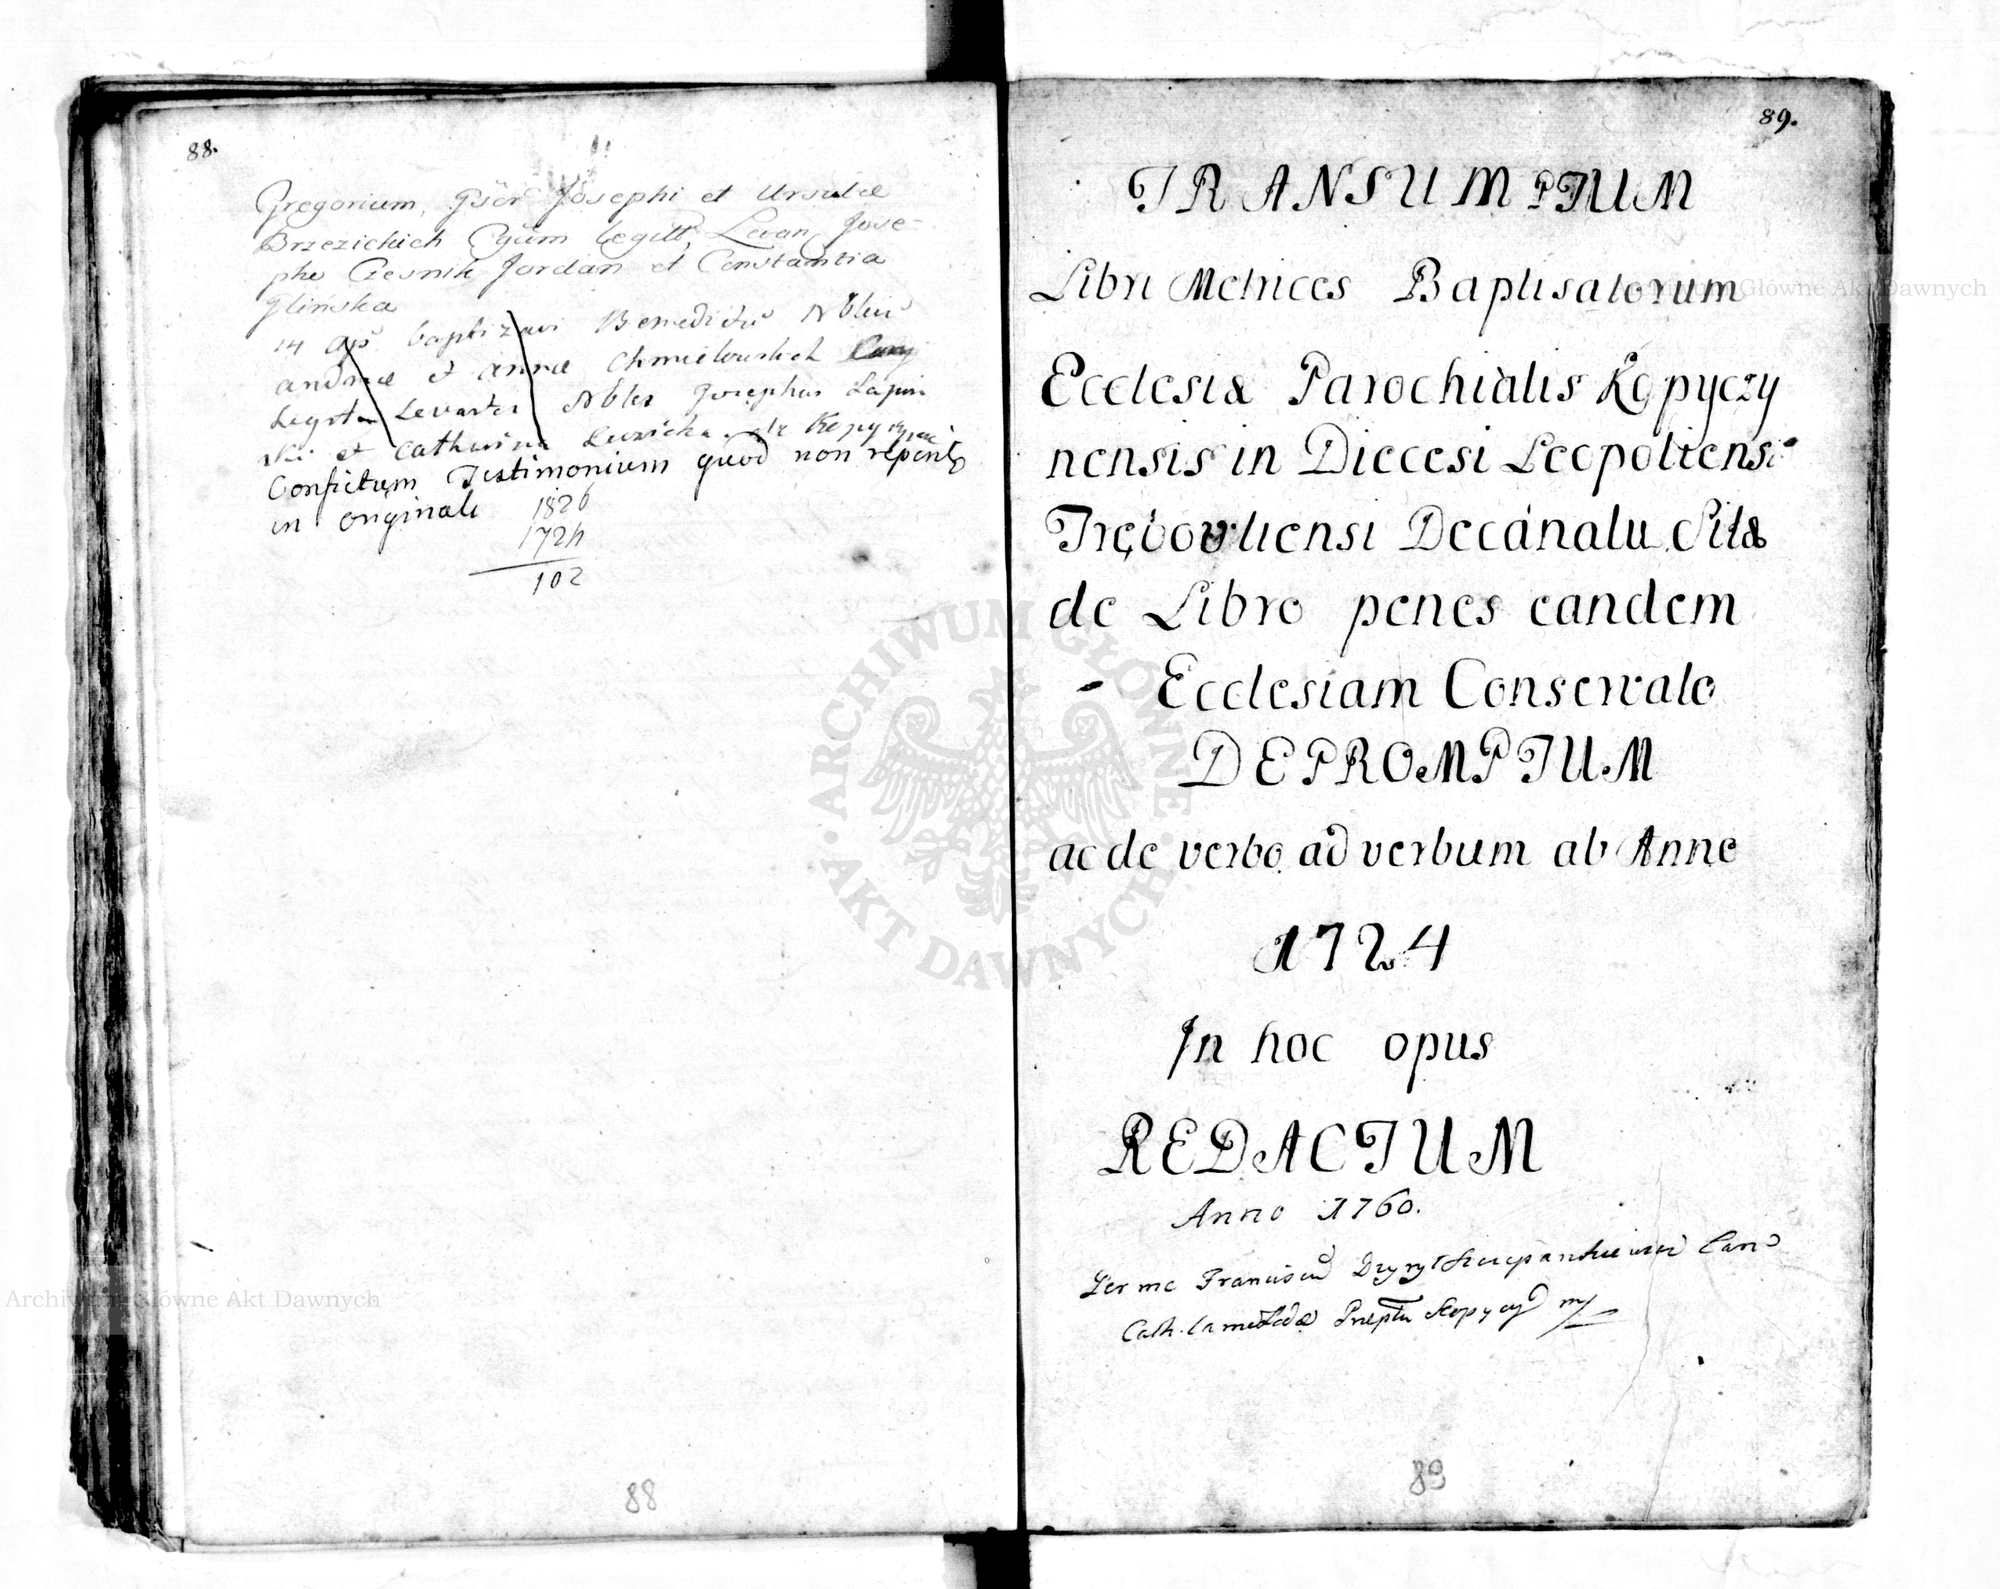 88.
Gregorium, Gsor Josephi et Ursulæ
Brzezickich Cgum legitt, Levan, Jose-
phe Czesnik Jordan et Constantia
Glinska
14 baptizavi Benedictu Nbliu
andreæ et annæ Chmielowskich
Levartes Nbles Josephus Lapin
ski et Catharina de
Confictum Testimonium quod non
in originali 1826
1724
102
88
89.
TRANSUMPTUM
Libri Metrices Baptisatorum
Ecclesiæ Parochialis Kopyczy
nensis in Diecesi Leopoliensi
Trębovliensi Decanatu Sitæ
de Libro penes eandem
Ecclesiam Conservato
DEPROMPTUM
ac de verbo ad verbum ab Anno
1724
In hoc opus
REDACTUM
Anno 1760.
Per me Franciscu Can
Cath. Præptu Kopycz mp
89
ARCHIWUM GŁÓWNE • AKT DAWNYCH •
Archiwum Główne Akt Dawnych
Archiwum Główne Akt Dawnych